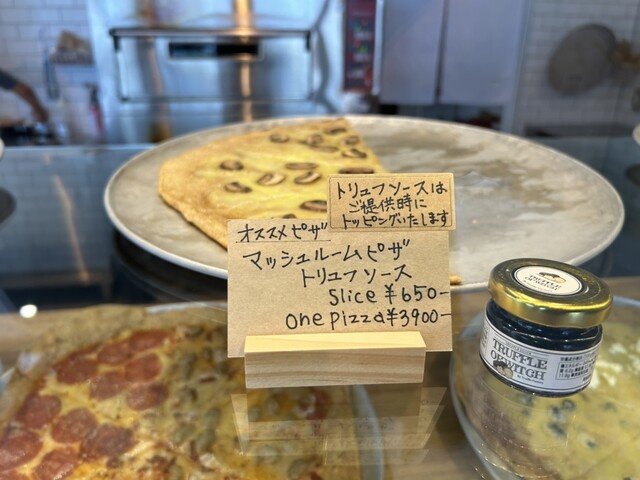 トリュフソースは
ご提供時に
トッピングいたします
オススメピザ
マッシュルームピザ
トリュフソース
Slice ¥650-
One pizza ¥3900-
TRUFFLE
OF WITCH